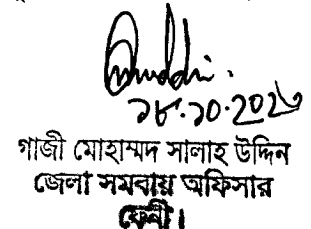 ১৮.১০.২০২৩
গাজী মোহাম্মদ সালাহ উদ্দিন
জেলা সমবায় অফিসার
ফেনী।